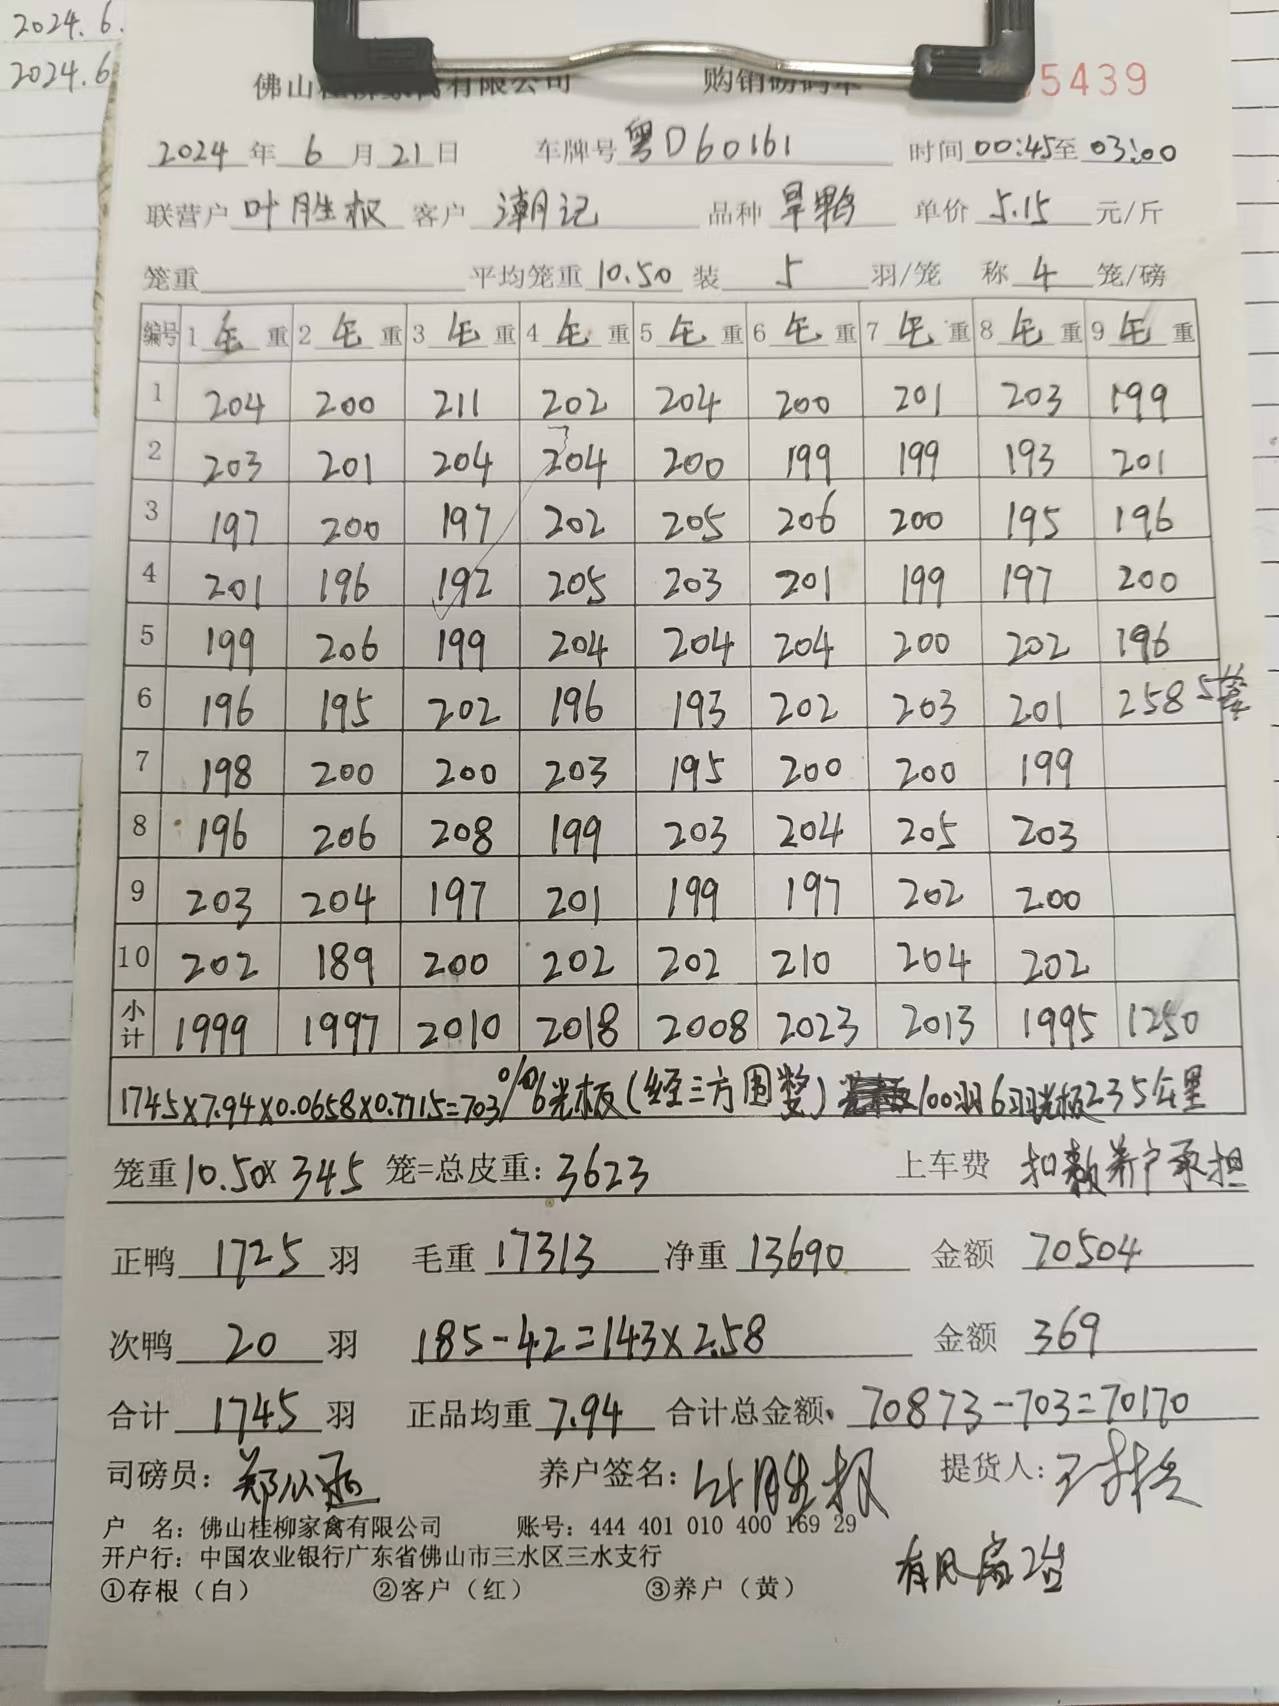 2024.6.
2024.6
佛山桂柳家禽有限公司 购销磅码单 5439
2024 年 6 月 21 日 车牌号 粤D60161 时间 00:45 至 03:00
联营户 叶胜权 客户 潮记 品种 旱鸭 单价 5.15 元/斤
笼重 平均笼重 10.50 装 5 羽/笼 称 4 笼/磅
编号 1 毛 重 2 毛 重 3 毛 重 4 毛 重 5 毛 重 6 毛 重 7 毛 重 8 毛 重 9 毛 重
1 204 200 211 202 204 200 201 203 199
2 203 201 204 204 200 199 199 193 201
3 197 200 197 202 205 206 200 195 196
4 201 196 192 205 203 201 199 197 200
5 199 206 199 204 204 204 200 202 196
6 196 195 202 196 193 202 203 201 258 5笼
7 198 200 200 203 195 200 200 199
8 196 206 208 199 203 204 205 203
9 203 204 197 201 199 197 202 200
10 202 189 200 202 202 210 204 202
小计 1999 1997 2010 2018 2008 2023 2013 1995 1250
1745×7.94×0.0658×0.7715=703 %6光板(经三方围整) 100羽6羽光板235公里
笼重 10.50× 345 笼=总皮重: 3623 上车费 扣款养户承担
正鸭 1725 羽 毛重 17313 净重 13690 金额 70504
次鸭 20 羽 185-42=143×2.58 金额 369
合计 1745 羽 正品均重 7.94 合计总金额: 70873-703=70170
司磅员: 养户签名: 叶胜权 提货人:
户 名: 佛山桂柳家禽有限公司 账号: 444 401 010 400 169 29
开户行: 中国农业银行广东省佛山市三水区三水支行
①存根（白） ②客户（红） ③养户（黄）
有风扇2台